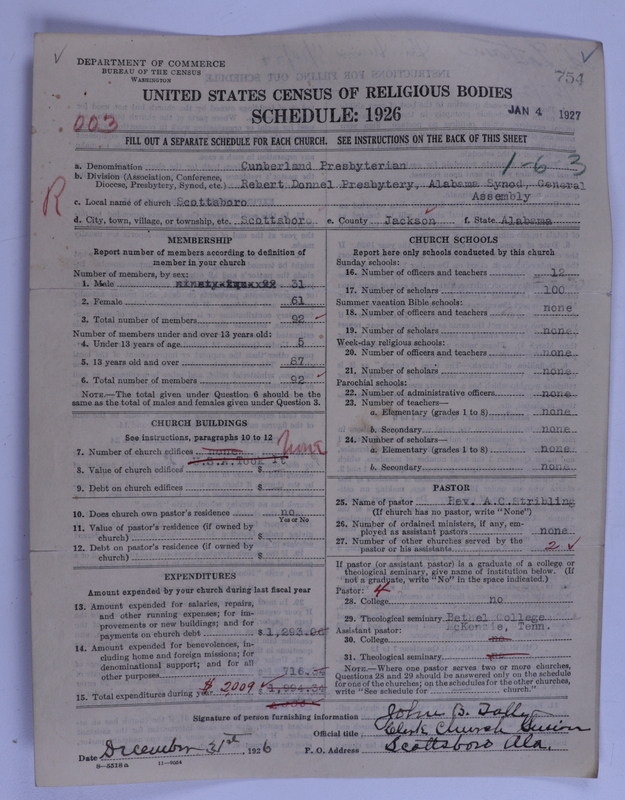 DEPARTMENT OF COMMERCE
BUREAU OF THE CENSUS
WASHINGTON
754
UNITED STATES CENSUS OF RELIGIOUS BODIES
SCHEDULE: 1926
JAN 4 1927
003
FILL OUT A SEPARATE SCHEDULE FOR EACH CHURCH. SEE INSTRUCTIONS ON THE BACK OF THIS SHEET
1-63
R
a. Denomination Cunberland Presbyterian
b. Division (Association, Conference, Diocese, Presbytery, Synod, etc.) Rebert Donnel Presbytery, Alabama Synod, General Assembly
c. Local name of church Scottsboro
d. City, town, village, or township, etc. Scottsboro e. County Jackson f. State Alabama
MEMBERSHIP
Report number of members according to definition of
member in your church
Number of members, by sex:
1. Male 31
2. Female 61
3. Total number of members 92
Number of members under and over 13 years old:
4. Under 13 years of age 5
5. 13 years old and over 87
6. Total number of members 92
NOTE.—The total given under Question 6 should be the
same as the total of males and females given under Question 3.
CHURCH BUILDINGS
See instructions, paragraphs 10 to 12
7. Number of church edifices none None
U.S.A. Took it
8. Value of church edifices $
9. Debt on church edifices $
10. Does church own pastor's residence? no
Yes or No
11. Value of pastor's residence (if owned by
church) $
12. Debt on pastor's residence (if owned by
church) $
EXPENDITURES
Amount expended by your church during last fiscal year
13. Amount expended for salaries, repairs,
and other running expenses; for im-
provements or new buildings; and for
payments on church debt $ 1,293.00
14. Amount expended for benevolences, in-
cluding home and foreign missions; for
denominational support; and for all
other purposes 716.34
15. Total expenditures during year $ 2009 1,994.34
CHURCH SCHOOLS
Report here only schools conducted by this church
Sunday schools:
16. Number of officers and teachers 12
17. Number of scholars 100
Summer vacation Bible schools:
18. Number of officers and teachers none
19. Number of scholars none
Week-day religious schools:
20. Number of officers and teachers none
21. Number of scholars none
Parochial schools:
22. Number of administrative officers none
23. Number of teachers—
a. Elementary (grades 1 to 8) none
b. Secondary none
24. Number of scholars—
a. Elementary (grades 1 to 8) none
b. Secondary none
PASTOR
25. Name of pastor Rev. A.C.Stribling
(If church has no pastor, write "None")
26. Number of ordained ministers, if any, em-
ployed as assistant pastors none
27. Number of other churches served by the
pastor or his assistants 2
If pastor (or assistant pastor) is a graduate of a college or
theological seminary, give name of institution below. (If
not a graduate, write "No" in the space indicated.)
Pastor: 4
28. College no
29. Theological seminary Bethel College
McKenzie, Tenn.
Assistant pastor:
30. College no
31. Theological seminary no
NOTE.—Where one pastor serves two or more churches,
Questions 28 and 29 should be answered only on the schedule
for one of the churches; on the schedules for the other churches,
write "See schedule for church."
Signature of person furnishing information John B. Tally
Official title Clerk Church Session
Date December 31st, 1926 P. O. Address Scottsboro Ala.
8—5518a 11—9084